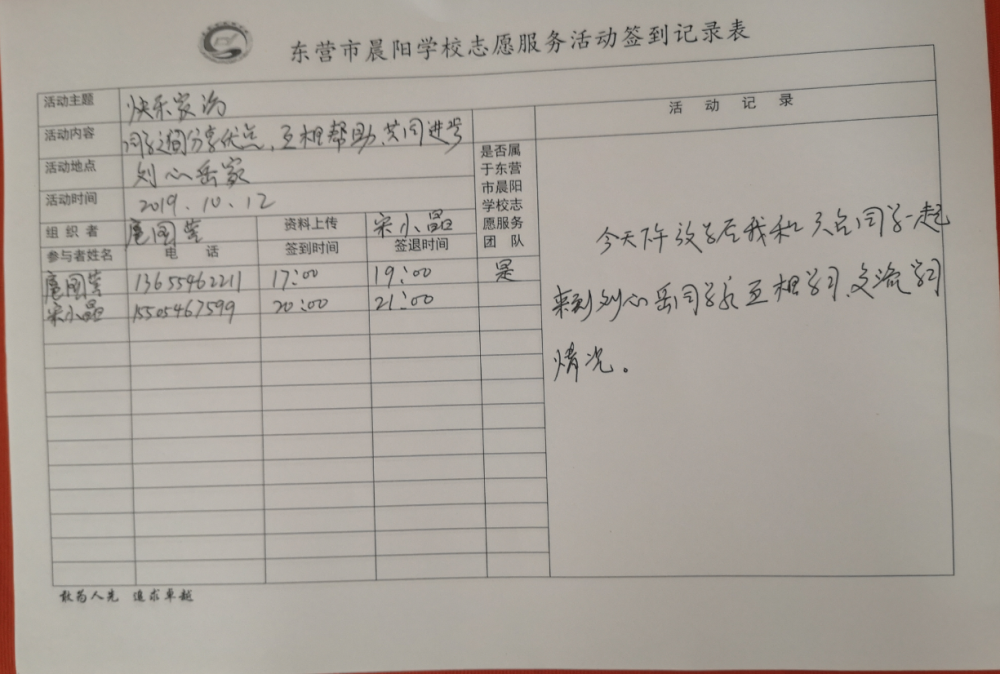 东营市晨阳学校志愿服务活动签到记录表
活动主题 快乐家访
活动内容 同学之间分享优点，互相帮助、共同进步
活动地点 刘心岳家
活动时间 2019.10.12
组织者 扈国莹 资料上传 宋小晶
参与者姓名 电话 签到时间 签退时间
是否属
于东营
市晨阳
学校志
愿服务
团队
扈国莹 13655462211 17:00 19:00 是
宋小晶 15505467599 20:00 21:00
活动记录
今天下午放学后我和同学一起
来到刘心岳同学家互相学习、交流学习
情况。
敢为人先 追求卓越